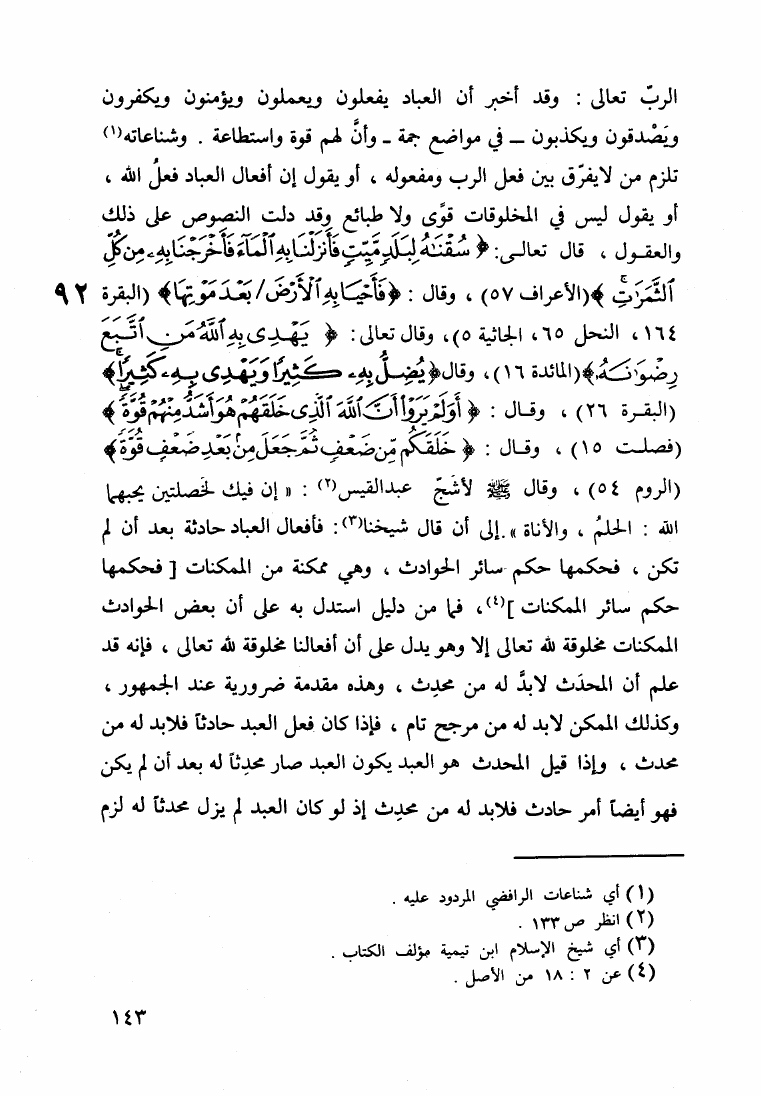 الربّ تعالى : وقد أخبر أن العباد يفعلون ويعملون ويؤمنون ويكفرون
ويَصْدقون ويكذبون ــ في مواضع جمة ـ وأنَّ لهم قوة واستطاعة . وشناعاته(١)
تلزم من لايفرّق بين فعل الرب ومفعوله ، أو يقول إن أفعال العباد فعلُ الله ،
أو يقول ليس في المخلوقات قوًى ولا طبائع وقد دلت النصوص على ذلك
والعقـول ، قال تعالـى: ﴿ سُقْنَٰهُ لِبَلَدٍ مَّيِّتٍ فَأَنزَلْنَا بِهِ ٱلْمَآءَ فَأَخْرَجْنَا بِهِۦ مِن كُلِّ
ٱلثَّمَرَٰتِ ﴾(الأعراف ٥٧) ، وقال : ﴿فَأَحْيَا بِهِ ٱلْأَرْضَ / بَعْدَ مَوْتِهَا﴾ (البقرة ٩٢
١٦٤ ، النحل ٦٥، الجاثية ٥)، وقال تعالى: ﴿ يَهْدِى بِهِ ٱللَّهُ مَنِ ٱتَّبَعَ
رِضْوَٰنَهُۥ﴾(المائدة ١٦)، وقال﴿يُضِلُّ بِهِۦ كَثِيرًا وَيَهْدِى بِهِۦ كَثِيرًا﴾
(البقـرة ٢٦) ، وقـال : ﴿ أَوَلَمْ يَرَوْا۟ أَنَّ ٱللَّهَ ٱلَّذِى خَلَقَهُمْ هُوَ أَشَدُّ مِنْهُمْ قُوَّةً ﴾
(فصلـت ١٥) ، وقـال : ﴿ خَلَقَكُم مِّن ضَعْفٍ ثُمَّ جَعَلَ مِنۢ بَعْدِ ضَعْفٍ قُوَّةً ﴾
(الروم ٥٤) ، وقال ﷺ لأشجّ عبدالقيس(٢) : « إن فيك لخصلتين يحبهما
الله : الحلمُ ، والأناة ».إلى أن قال شيخنا(٣): فأفعال العباد حادثة بعد أن لم
تكن ، فحكمها حكم سائر الحوادث ، وهي ممكنة من الممكنات [ فحكمها
حكم سائر الممكنات ](٤)، فما من دليل استدل به على أن بعض الحوادث
الممكنات مخلوقة لله تعالى إلا وهو يدل على أن أفعالنا مخلوقة لله تعالى ، فإنه قد
علم أن المحدَث لابدَّ له من محدِث ، وهذه مقدمة ضرورية عند الجمهور ،
وكذلك الممكن لابد له من مرجح تام ، فإذا كان فعل العبد حادثاً فلابد له من
محدث ، وإذا قيل المحدث هو العبد يكون العبد صار محدِثاً له بعد أن لم يكن
فهو أيضاً أمر حادث فلابد له من محدِث إذ لو كان العبد لم يزل محدثاً له لزم
(١) أي شناعات الرافضي المردود عليه .
(٢) انظر ص١٣٣ .
(٣) أي شيخ الإسلام ابن تيمية مؤلف الكتاب .
(٤) عن ٢ : ١٨ من الأصل .
١٤٣